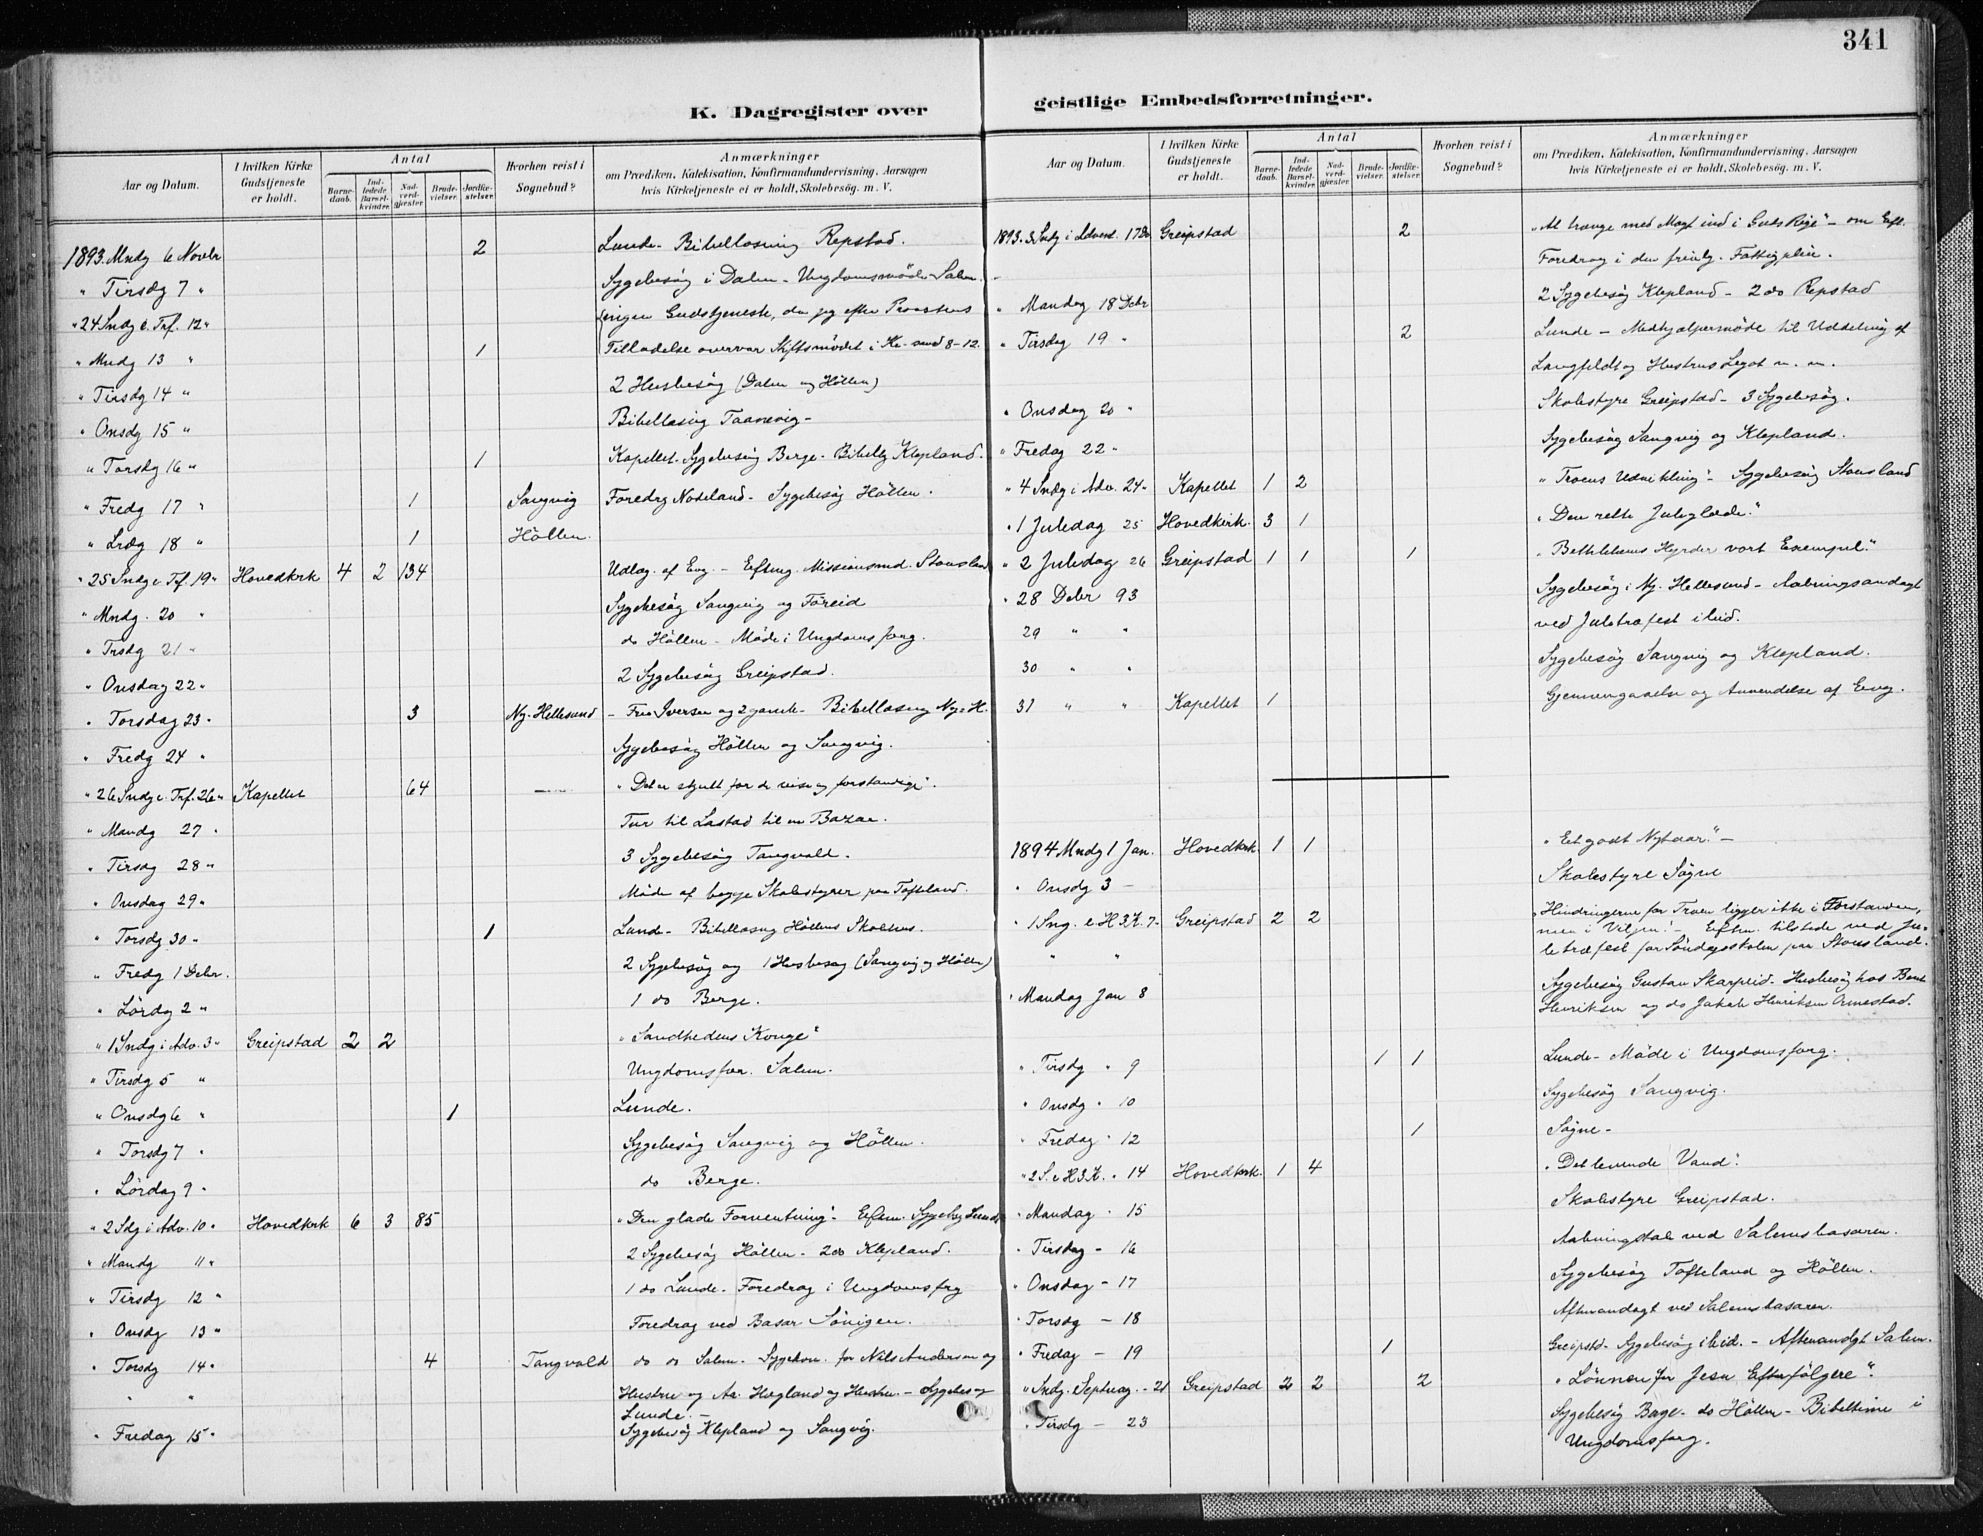 341
K. Dagregister over
geistlige Embedsforretninger.
Aar og Datum.
I hvilken Kirke Gudstjeneste er holdt.
Antal
Barnedaab.
Indledede Barselkvinder.
Nadverdgjester
Brudevielser.
Jordfæstelser.
Hvorhen reist i Sognebud?
Anmærkninger
om Prædiken, Katekisation, Konfirmandundervisning, Aarsagen
hvis Kirketjeneste ei er holdt, Skolebesøg. m. V.
1893. Mndg 6 Novbr 2 Lunde - Bibellæsning Repstad.
" Tirsdg 7 " Sygebesøg i Dalen - Ungdomsmøde Salem
" 24 Sndg e. Trf. 12 " ingen Gudstjeneste, da jeg efter Provstens
" Mndg 13 " 1 Tilladelse overvar Stiftsmødet i Kr.sand 8-12.
" Tirsdg 14 " 2 Husbesøg (Dalen og Höllen)
" Onsdg 15 " Bibellæsning Taanevig -
" Torsdg 16 " 1 Kapellet. Sygebesøg Berge - Bibell. Klepland.
" Fredg 17 " 1 Sangvig Foredrg Nodeland - Sygebesøg Höllen.
" Lrdg 18 " 1 Höllen.
" 25 Sndg e. Trf. 19 " Hovedkrk 4 2 134 Udlæg. af Evg. - Eftmg. Missionsmd. Stausland
" Mndg. 20 " Sygebesøg Sangvig og Föreid
" Trsdg 21 " do Höllen - Møde i Ungdomsforg.
" Onsdag 22 " 2 Sygebesøg Greipstad.
" Torsdag 23 " 3 Ny-Hellesund - Fru Iversen og 2 gamle - Bibellæsning Ny-H.
" Fredg 24 " Sygebesøg Höllen og Sangvig.
" 26 Sndg e. Trf. 26 " Kapellet 64 " Det er skjult for de vise og forstandige".
" Mandg 27 " Tur til Lastad til en Bazar.
" Tirsdg 28 " 3 Sygebesøg Tangvald.
" Onsdag 29 " Møde af begge Skolestyrer paa Tofteland.
" Torsdg 30 " 1 Lunde - Bibellæsng Höllens Skolehus.
" Fredg 1 Debr. 2 Sygebesøg og 1 Husbesøg (Sangvig og Höllen)
" Lördg 2 " 1 do Berge.
" 1 Sndg i Adv. 3 " Greipstad 2 2 " Sandhedens Konge"
" Tirsdg 5 " Ungdomsfor. Salem.
" Onsdg 6 " 1 Lunde.
" Torsdg 7 " Sygebesøg Sangvig og Höllen.
" Lördag 9 " do Berge.
" 2 Sdg i Adv. 10 " Hovedkrk 6 3 85 "Den glade Forventning". Eftm. Sygebg Lunde
" Mandg 11 " 2 Sygebesøg Höllen - 2 do Klepland.
" Tirsdg 12 " 1 do Lunde. Foredrag i Ungdomsfrg
" Onsdg 13 " Foredrag ved Basar Sönigen.
" Torsdg 14 " 4 Tangvald do do Salem. Sygekom. for Nils Andersen og
" " Hustru og Aa. Hægland og Hustru. - Sygebesøg
Lunde. -
" Fredag 15 " Sygebesøg Klepland og Sangvig.
Aar og Datum.
I hvilken Kirke Gudstjeneste er holdt.
Antal
Barnedaab.
Indledede Barselkvinder.
Nadverdgjester
Brudevielser.
Jordfæstelser.
Hvorhen reist i Sognebud?
Anmærkninger
om Prædiken, Katekisation, Konfirmandundervisning, Aarsagen
hvis Kirketjeneste ei er holdt, Skolebesøg. m. V.
1893. 3 Sndg i Advent. 17 Do Greipstad 2 "At trænge med Magt ind i Guds Rige" - om Eft.
Foredrag i den frivlg. Fattigpleie.
" Mandag 18 Debr 2 Sygebesøg Klepland - 2 do Repstad
" Tirsdag 19 " 2 Lunde - Medhjælpermøde til Uddeling af
Langfeldt og Hustrus Legat m. m.
" Onsdag 20 " Skolestyre Greipstad - 3 Sygebesøg.
" Fredag 22 " Sygebesøg Sangvig og Klepland.
" 4 Sndg i Adv. 24 " Kapellet 1 2 "Troens Udvikling" - Sygebesøg Stausland
" 1 Juledag 25 Hovedkirk. 3 1 " Den rette Juleglæde."
" 2 Juledag 26 Greipstad 1 1 1 " Bethlehems Hyrder vort Exempel."
" 28 Debr 93 Sygebesøg i Ny-Hellesund - Aabningsandagt
29 " " ved Juletræfest i Eid.
30 " " Sygebesøg Sangvig og Klepland.
31 " " Kapellet 1 Gjennemgaaelse og Anvendelse af Evg.
1894 Mndg 1 Jan. Hovedkrk 1 1 " Et godt Nytaar." -
" Onsdg 3 - Skolestyre Søgne
" 1 Sng. e. H 3 K. 7 - Greipstad 2 2 " Hindringerne for Troen ligger ikke i Forstanden,
men i Viljen". - Eftm. tilstede ved Ju-
letræfest for Söndagsskolen paa Stausland.
" "
" Mandag Jan 8 Sygebesøg Gustav Skarpeid. Husbesøg hos Bent
Henriksen og do Jakob Henriksen Omestad.
" Tirsdg " 9 1 1 Lunde - Møde i Ungdomsforg.
" Onsdg " 10 Sygebesøg Sangvig.
" Fredag " 12 1 Søgne -
" 2 S. e H 3 K. " 14 Hovedkrk. 1 4 " Det levende Vand".
" Mandag " 15 Skolestyre Greipstad.
" Tirsdag - 16 Aabningstale ved Salemsbasaren.
" Onsdag - 17 Sygebesøg Tofteland og Höllen.
" Torsdg - 18 Aftenandagt ved Salemsbasaren.
" Fredag - 19 1 Greipstd - Sygebesøg i Eid. - Aftenandgt Salem.
" Sndg. Septuag. - 21 Greipstad 2 2 2 " Lönnen for Jesu Efterfölgere".
" Tirsdg - 23 Sygebesøg Berge - do Höllen - Bibeltime i
Ungdomsforg.